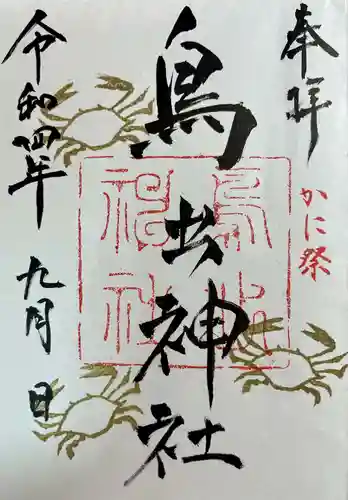 奉拝
かに祭
鳥出神社
令和四年 九月 日
鳥出神社